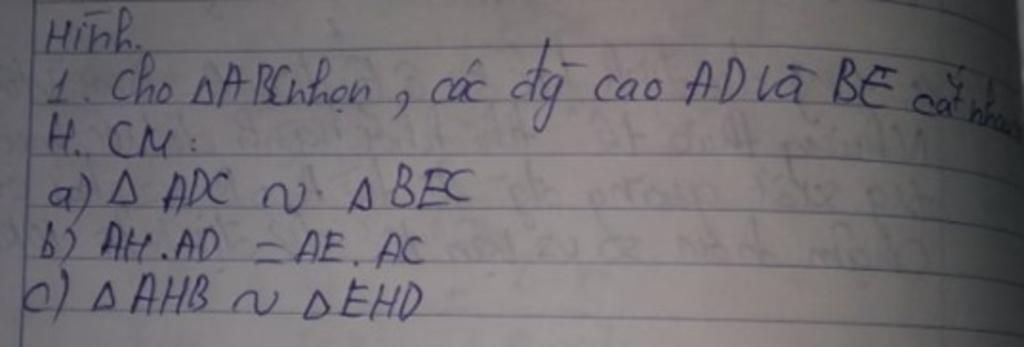 Hình.
1. Cho ΔABC nhọn, các đg cao AD và BE cắt nhau
H. CM:
a) Δ ADC ~ Δ BEC
b) AH.AD = AE. AC
c) Δ AHB ~ Δ EHD